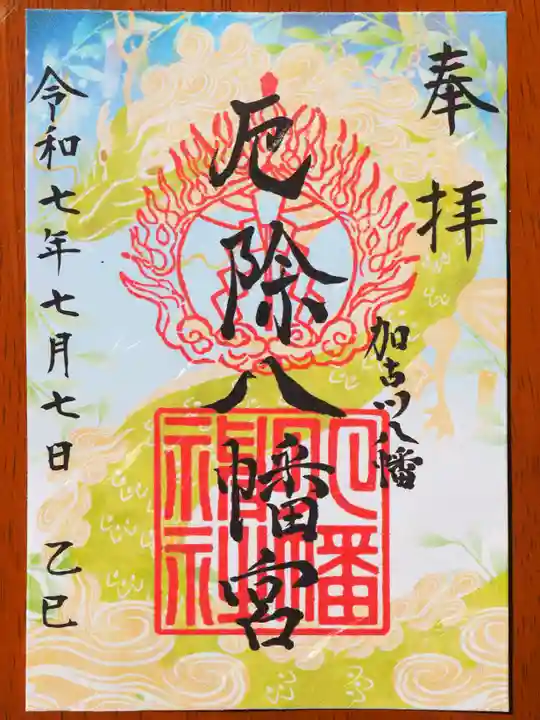 奉拝
加古川八幡
厄除八幡宮
八幡神社
令和七年七月七日 乙巳